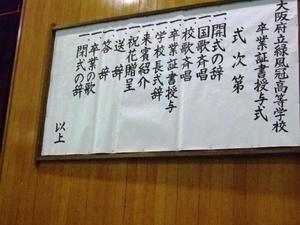 大阪府立緑風冠高等学校
卒業証書授与式
式次第
一、開式の辞
一、国歌斉唱
一、校歌斉唱
一、卒業証書授与
一、学校長式辞
一、来賓紹介
一、祝花贈呈
一、送辞
一、答辞
一、卒業の歌
一、閉式の辞
以上